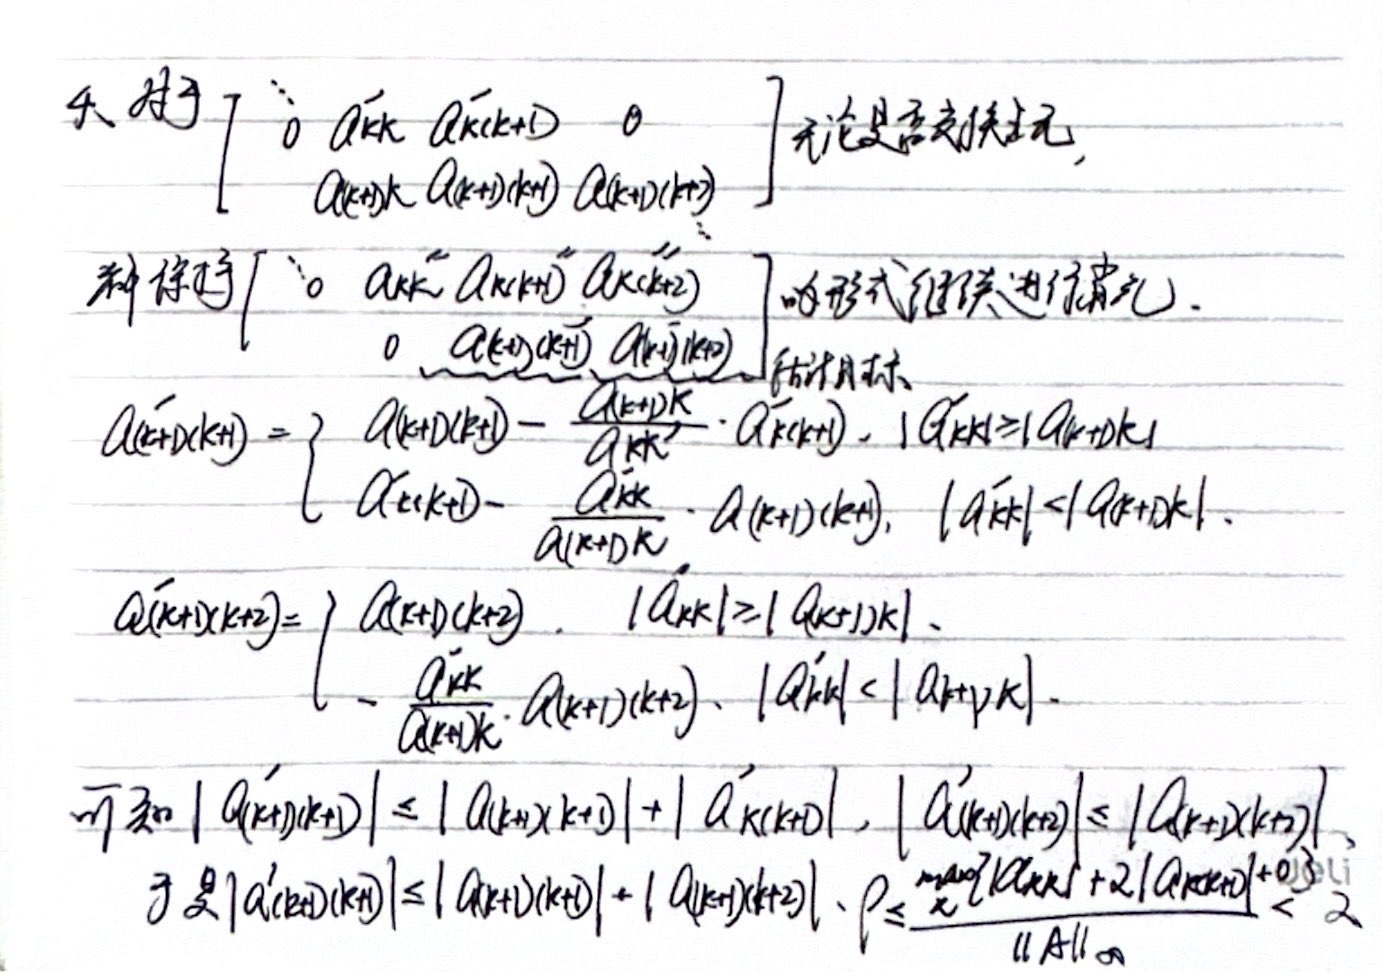 4、对于 [ ⋱ 0 a'kk a'k(k+1) 0
a(k+1)k a(k+1)(k+1) a(k+1)(k+2) ⋱ ] 无论是否交换主元,
都保持 [ ⋱ 0 akk'' ak(k+1)'' ak(k+2)''
0 a(k+1)(k+1)' a(k+1)(k+2)' ] 的形式继续进行消元.
估计目标、
a'(k+1)(k+1) = { a(k+1)(k+1) - a(k+1)k / akk' · a'k(k+1), |a'kk| ≥ |a(k+1)k|
a'k(k+1) - a'kk / a(k+1)k · a(k+1)(k+1), |a'kk| < |a(k+1)k|.
a'(k+1)(k+2) = { a(k+1)(k+2). |a'kk| ≥ |a(k+1)k|.
- a'kk / a(k+1)k · a(k+1)(k+2)、|a'kk| < |a(k+1)k|.
可知 |a'(k+1)(k+1)| ≤ |a(k+1)(k+1)| + |a'k(k+1)|, |a'(k+1)(k+2)| ≤ |a(k+1)(k+2)|、
于是 |a'(k+1)(k+1)| ≤ |a(k+1)(k+1)| + |a(k+1)(k+2)|、ρ ≤ max k {|akk| + 2|ak(k+1)| + 0} / ||A||∞ < 2
deli